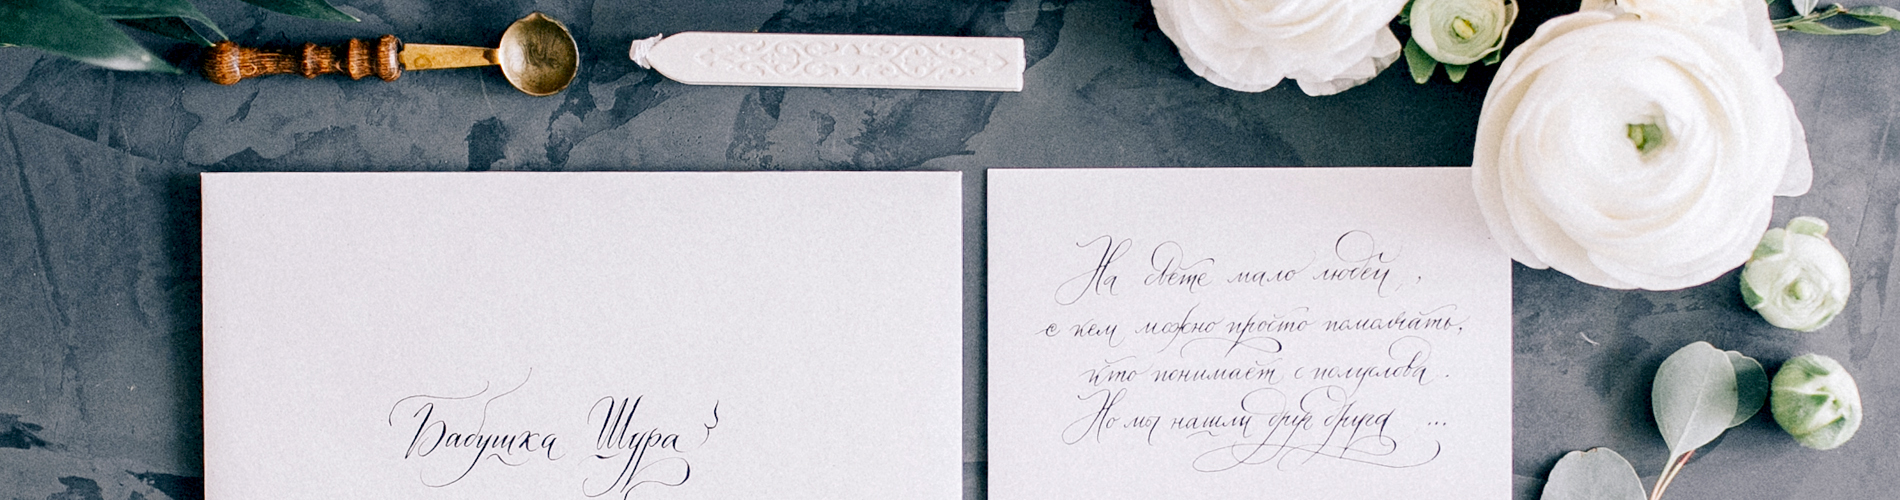 Бабушка Шура
На свете мало людей,
с кем можно просто помолчать,
кто понимает с полуслова.
Но мы нашли друг друга ...